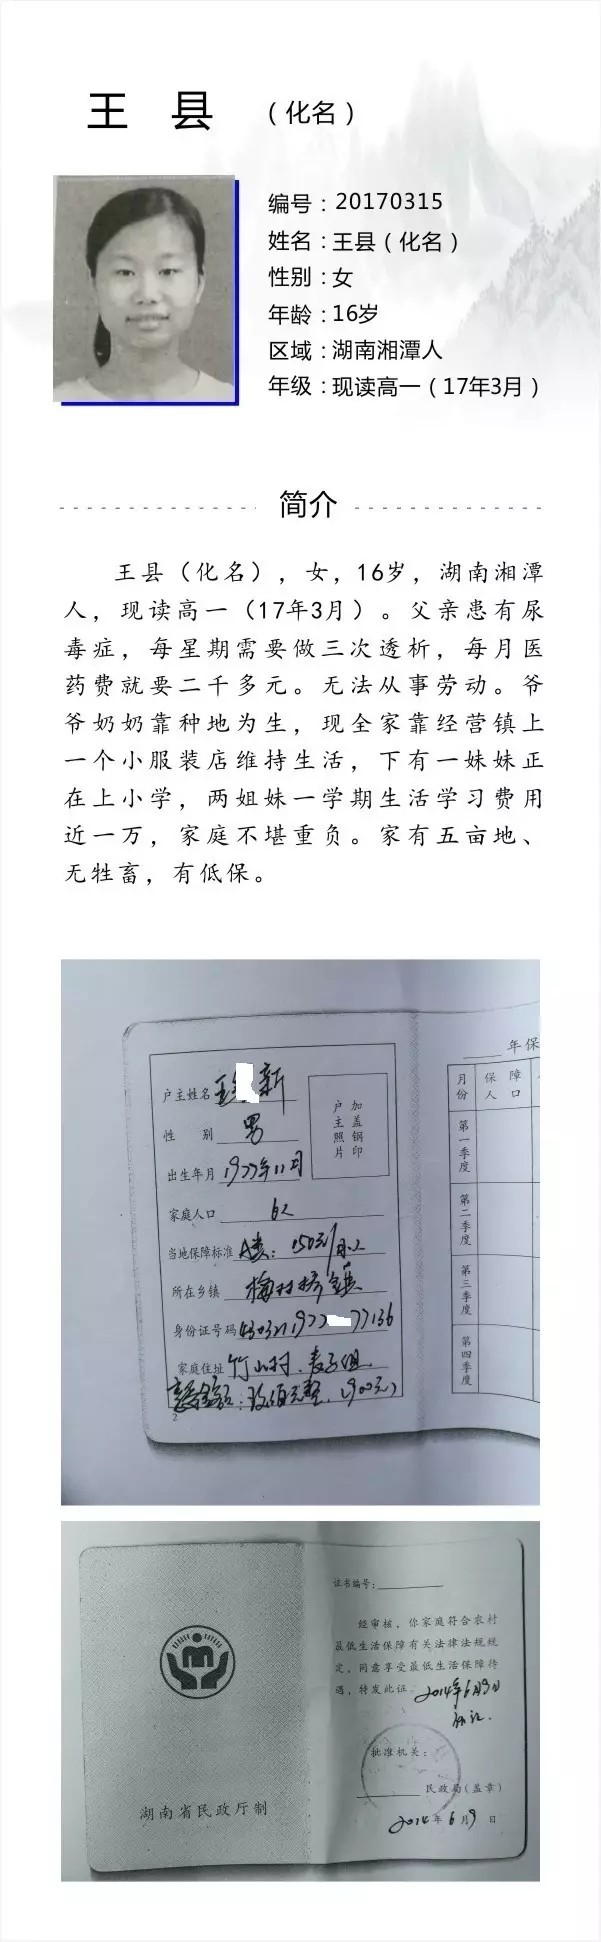 王 县 （化名）
编号：20170315
姓名：王县（化名）
性别：女
年龄：16岁
区域：湖南湘潭人
年级：现读高一（17年3月）
简介
王县（化名），女，16岁，湖南湘潭
人，现读高一（17年3月）。父亲患有尿
毒症，每星期需要做三次透析，每月医
药费就要二千多元。无法从事劳动。爷
爷奶奶靠种地为生，现全家靠经营镇上
一个小服装店维持生活，下有一妹妹正
在上小学，两姐妹一学期生活学习费用
近一万，家庭不堪重负。家有五亩地、
无牲畜，有低保。
户主姓名 王 新
性 别 男
出生年月 1977年11月
家庭人口 6人
当地保障标准 A类：150元/月人
所在乡镇 梅林桥镇
身份证号码 4303211977 77136
家庭住址 竹山村
2
户主照片
加盖钢印
年保
月份
保障人口
第一季度
第二季度
第三季度
第四季度
湖南省民政厅制
证书编号：
经审核，你家庭符合农村
最低生活保障有关法律法规规
定，同意享受最低生活保障待
遇，特发此证。2014年6月9日
批准机关：
民政局（盖章）
2014年6月9日